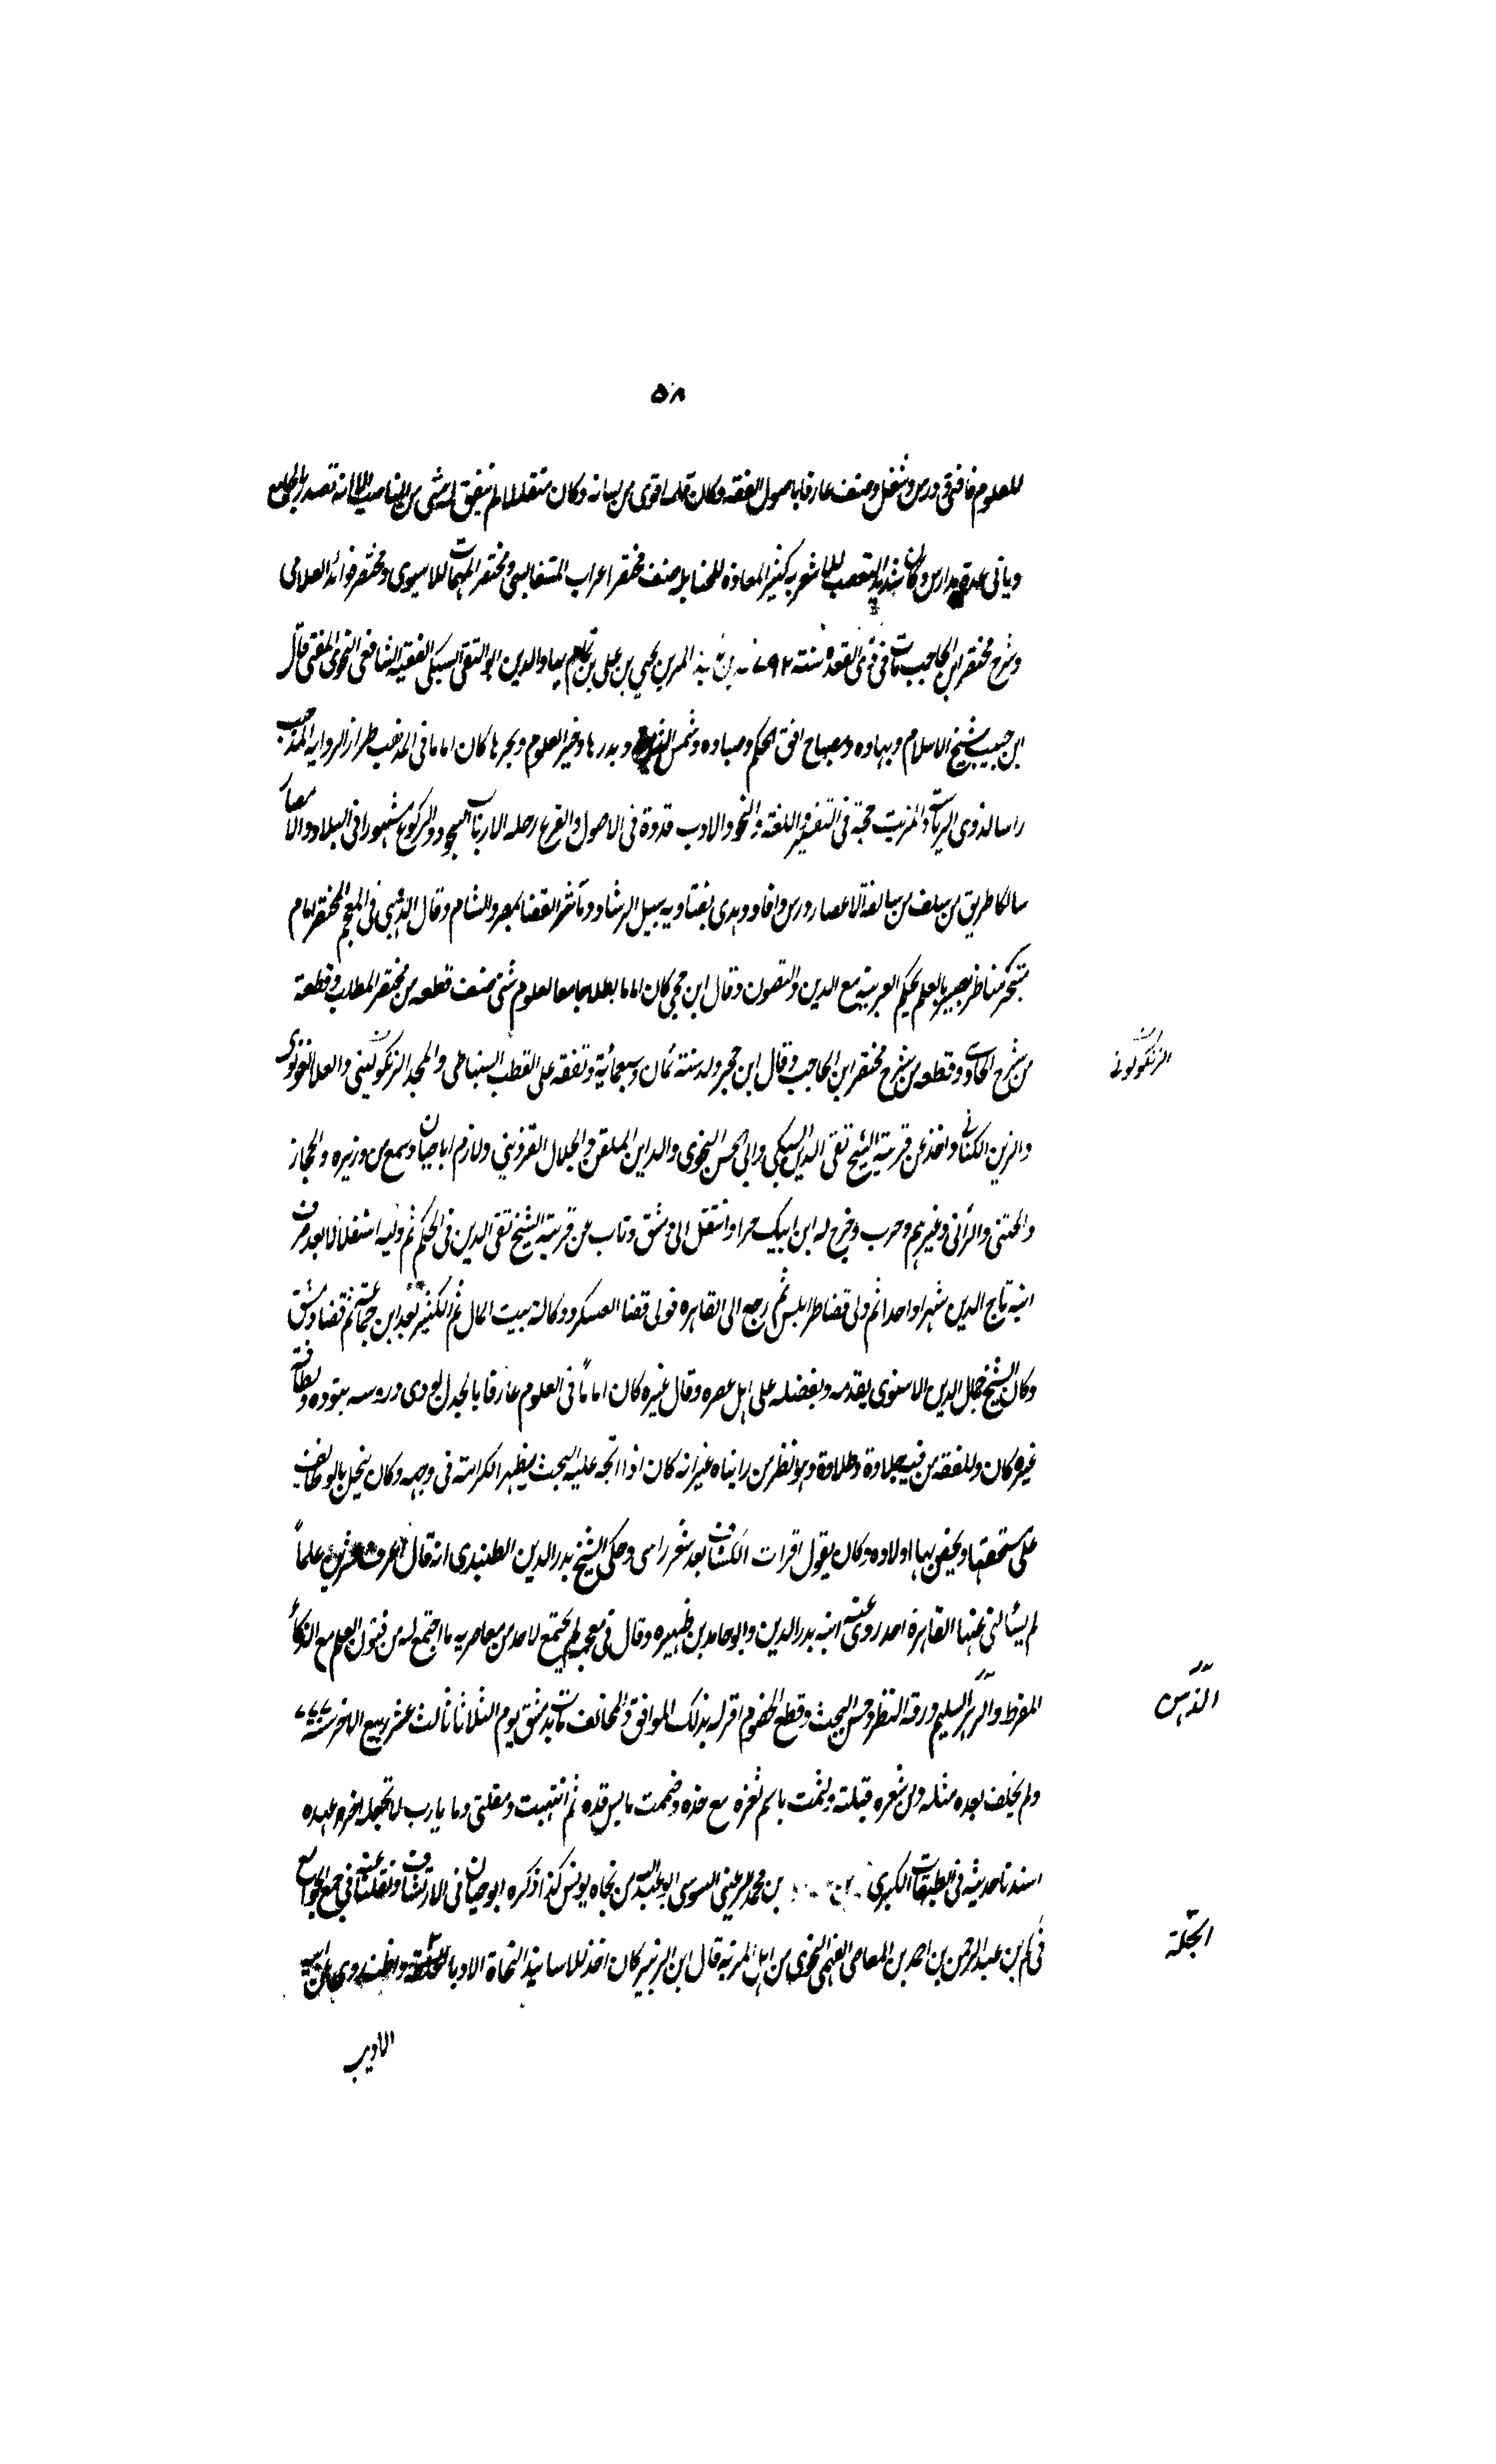 ٥٨
للعلوم فافتى ودرس وشغل وصنف عارفا باصول الفقه وكان قلمه اقوى من لسانه وكان متقللا لم يتفق له شى من المناصب الا انه تصدر بالجامع
وباقى عدة مدارس وكان شديد التعصب للاشعرية كثير المعاداة للحنابلة صنف مختصر اعراب السفاقسى ومختصر المهمات للاسنوى ومختصر قواعد العلائى
وشرح مختصر ابن الحاجب مات فى ذى القعدة سنة ٧٩٢ بن عبد البر بن يحيى بن على بن تمام بهاء الدين ابو البقا السبكى الفقيه الشافعى النحوى المفتى قال
ابن حبيب شيخ الاسلام وبهاوه ومصباح افق الحكم وضياوه وشمس وبدرها وحبر العلوم وبحرها كان اماما فى المذهب طراز الرواية المذهب
راسا لذوى الرياسة والمرتبة حجة فى التفسير واللغة والنحو والادب قدوة فى الاصول والفرع رحلة الارباب السجود والركوع مشهورا فى البلاد والامصار
سالكا طريق من سلف من سالفة الاعصار درس وافاد وهدى بفتاويه سبيل الرشاد وباشر القضا بمصر والشام وقال الذهبى فى المعجم المختصر امام
متبحر مناظر بصير بالعلم محكم العربية مع الدين والتصون وقال ابن حجى كان اماما بعلا جامعا لعلوم شتى صنف قطعه من مختصر المطلب وقطعة
من شرح الحاوى وقطعه من شرح مختصر ابن الحاجب وقال ابن حجر ولد سنة ثمان وسبعمائة وتفقه على القطب السنباطى والمجد الزنكلونى والعلا القونوى
الزنكلونى
والزين الكتانى واخذ عن قريبه الشيخ تقى الدين السبكى وابى الحسن النحوى والد ابن الملقن والجلال القزوينى ولازم اباحيان وسمع من وزيرة والحجار
والختنى والوانى وغيرهم وحدث وخرج له ابن ايبك جزا وانتقل الى دمشق وناب عن قريبه الشيخ تقى الدين فى الحكم ثم وليه استقلالا بعد صرف
ابنه تاج الدين شهرا واحدا ثم ولى قضا طرابلس ثم رجع الى القاهره فولى قضا العسكر ووكالة بيت المال ثم الكبير بعد ابن جماعة ثم قضا دمشق
وكان الشيخ جمال الدين الاسنوى يقدمه ويفضله على اهل عصره وقال غيره كان اماما فى العلوم عارفا بالجدل يودى دروسه بتوده ولطافة
غيره كان وللفقه من فيه حلاوة وطلاوة وهو انظر من رايناه غير انه كان اذا اتجه عليه البحث يظهر الكراهة فى وجهه وكان يبخل بالوظائف
على مستحقها ويخص بها اولاده وكان يقول اقرات الكشاف بعدد شعر راسى وحكى الشيخ بدر الدين الطنبدى انه قال اعرف عشرين علماً
لم يسألنى عنها القاهرة احد روى عنه ابنه بدر الدين وابو حامد بن ظهيره وقال فى معجمه لم يجتمع لاحد من معاصريه ما اجتمع له من فنون العلم مع الذكاء
المفرط والذهن السليم ودقة النظر وحسن البحث وقطع الخصوم اقر له بذلك الموافق والمخالف مات بدمشق يوم الثلاثا ثالث عشر ربيع الاخر سنة ٧٧٧
الذهن
ولم يخلف بعده مثله ومن شعره قبلته ولثمت باسم ثغره مع خده وضممت مايس قده ثم انتبهت ومقلتى دما يارب لا تجعله اخر عهده
اسندنا حديثه فى الطبقات الكبرى بن محمد الرعينى السوسى ابو عبدالله من نحاة يونس كذا ذكره ابو حيان فى الارتشاف ونقلت عنه فى جمع الجوامع
بن عبد الرحمن بن احمد بن المعاصى الفهمى النحوى من اهل المرية قال ابن الزبير كان اخذ للاساتيذ النحاة الادبا
الجلة
الاديب